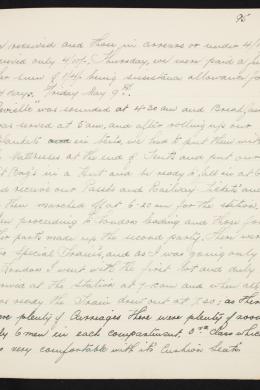 95
received and those in arrears or under 4/
received only 4/0½. Thursday, we were paid a
sum of being subsistence allowance for
days. Friday May 9th.
Reveille" was sounded at 4-30 am and Breakfast
was served at 5 am, and after rolling up our
Blankets in hols, we had to put them with
Mattresses at the end of Tents and put our
Kit Bag's in a Tent and be ready to fall in at 6
and receive our Passes and Railway Tickets and
then marched off at 6-20 am for the station,
men proceeding to London leading and those for
other parts made up the second party, there were
special Trains, and as I was going only
London I went with the first lot and duly
arrived at the station at 7-0 am and when all
was ready the Train drew out at 7.20; as there
were plenty of Carriages there were plenty of room
only 6 men in each compartment, 3rd class which
very comfortable with its Cushion Seats